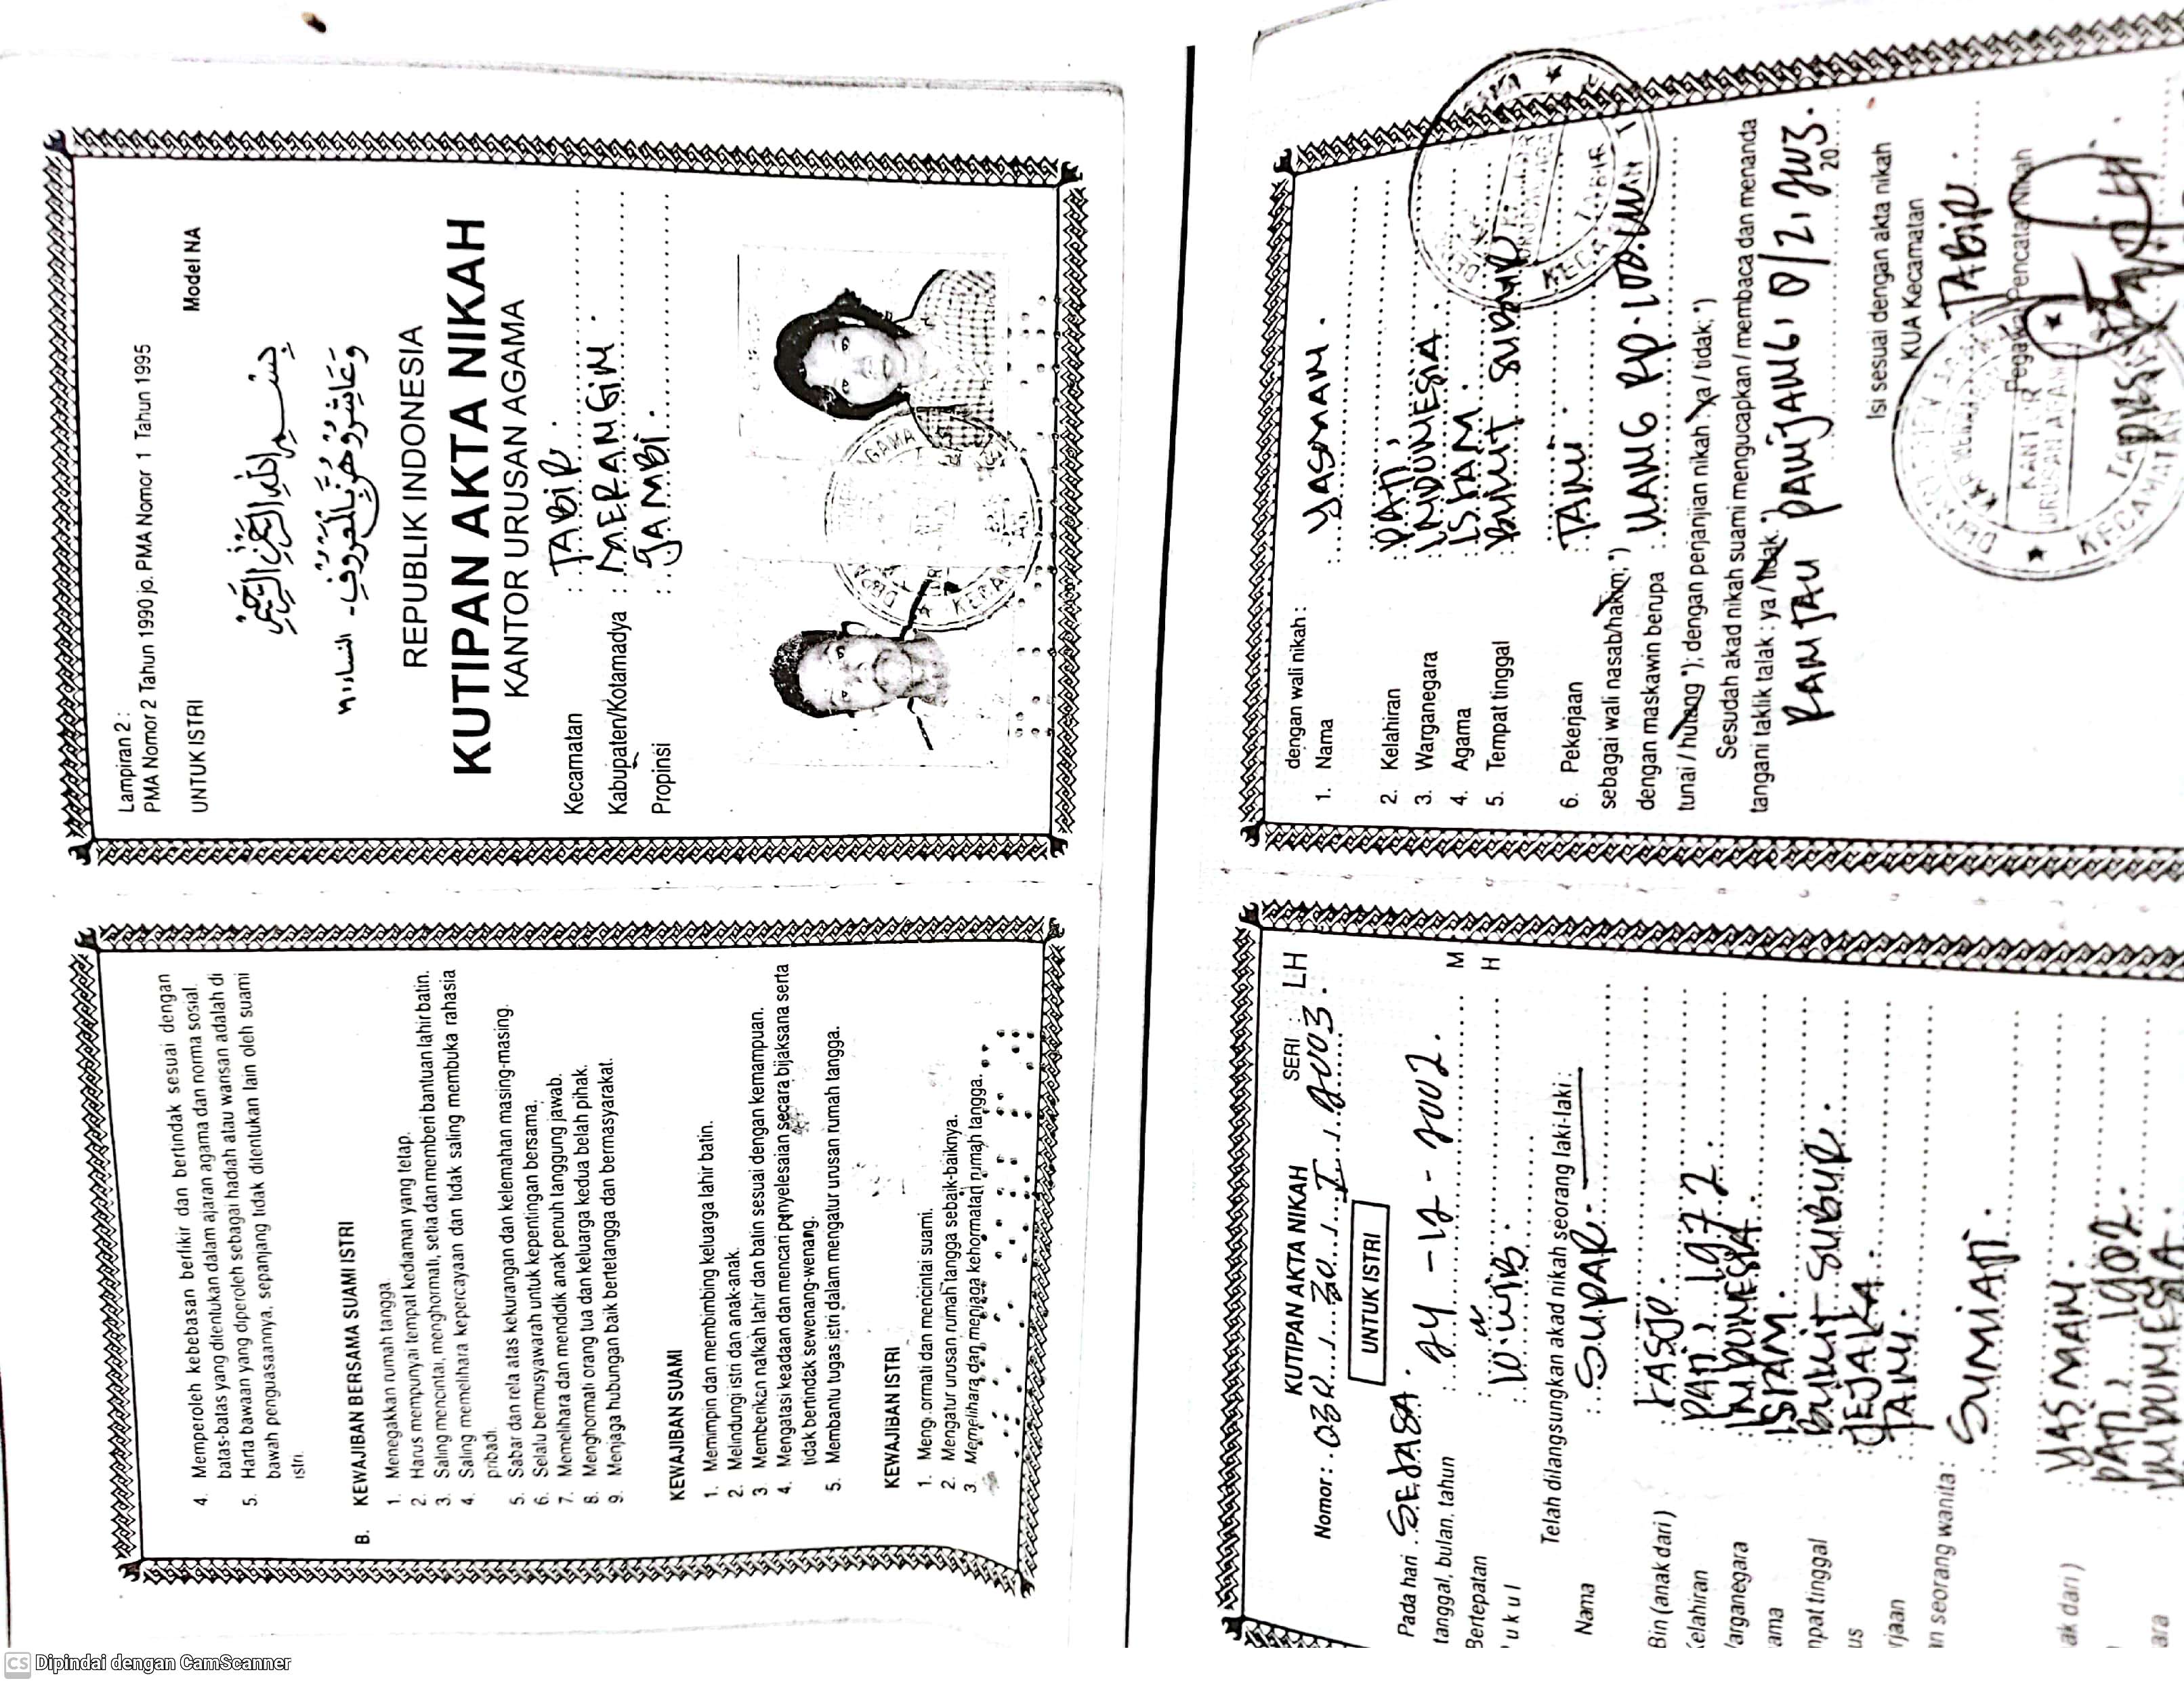 Lampiran 2 :
PMA Nomor 2 Tahun 1990 jo. PMA Nomor 1 Tahun 1995
UNTUK ISTRI Model NA
بسم الله الرحمن الرحيم
وعاشروهن بالمعروف - النساء ١٩
REPUBLIK INDONESIA
KUTIPAN AKTA NIKAH
KANTOR URUSAN AGAMA
Kecamatan : TABIR.
Kabupaten/Kotamadya : MERANGIN.
Propinsi : JAMBI.
4. Memperoleh kebebasan berfikir dan bertindak sesuai dengan
batas-batas yang ditentukan dalam ajaran agama dan norma sosial.
5. Harta bawaan yang diperoleh sebagai hadiah atau warisan adalah di
bawah penguasaannya, sepanjang tidak ditentukan lain oleh suami
istri.
B. KEWAJIBAN BERSAMA SUAMI ISTRI
1. Menegakkan rumah tangga.
2. Harus mempunyai tempat kediaman yang tetap.
3. Saling mencintai, menghormati, setia dan memberi bantuan lahir batin.
4. Saling memelihara kepercayaan dan tidak saling membuka rahasia
pribadi.
5. Sabar dan rela atas kekurangan dan kelemahan masing-masing.
6. Selalu bermusyawarah untuk kepentingan bersama.
7. Memelihara dan mendidik anak penuh tanggung jawab.
8. Menghormati orang tua dan keluarga kedua belah pihak.
9. Menjaga hubungan baik bertetangga dan bermasyarakat.
KEWAJIBAN SUAMI
1. Memimpin dan membimbing keluarga lahir batin.
2. Melindungi istri dan anak-anak.
3. Memberikan nafkah lahir dan batin sesuai dengan kemampuan.
4. Mengatasi keadaan dan mencari penyelesaian secara bijaksana serta
tidak bertindak sewenang-wenang.
5. Membantu tugas istri dalam mengatur urusan rumah tangga.
KEWAJIBAN ISTRI
1. Menghormati dan mencintai suami.
2. Mengatur urusan rumah tangga sebaik-baiknya.
3. Memelihara dan menjaga kehormatan rumah tangga.
dengan wali nikah :
1. Nama : YASMAN.
2. Kelahiran : PATI,
3. Warganegara : INDONESIA.
4. Agama : ISLAM.
5. Tempat tinggal : BUKIT SUBUR
6. Pekerjaan : TANI.
sebagai wali nasab/hakim; *)
dengan maskawin berupa : UANG RP.
tunai / hutang *); dengan perjanjian nikah : ya / tidak; *)
Sesudah akad nikah suami mengucapkan / membaca dan menanda
tangani taklik talak : ya / tidak. *)
RANTAU PANJANG,
20
Isi sesuai dengan akta nikah
KUA Kecamatan
TABIR.
Pegawai Pencatat Nikah
KUTIPAN AKTA NIKAH SERI LH
Nomor :
UNTUK ISTRI
Pada hari SELASA.
tanggal, bulan, tahun : 24 - 12 - 2002. M
Bertepatan H
Telah dilangsungkan akad nikah seorang laki-laki :
Nama : SUPAR.
Bin (anak dari )
Kelahiran : PATI, 1972.
Warganegara : INDONESIA.
ama : ISLAM.
mpat tinggal : BUKIT SUBUR.
us : JEJAKA.
rjaan : TANI.
n seorang wanita :
SUMIATI.
ak dari ) : YASMAN.
PATI,
ara : INDONESIA.
CS Dipindai dengan CamScanner